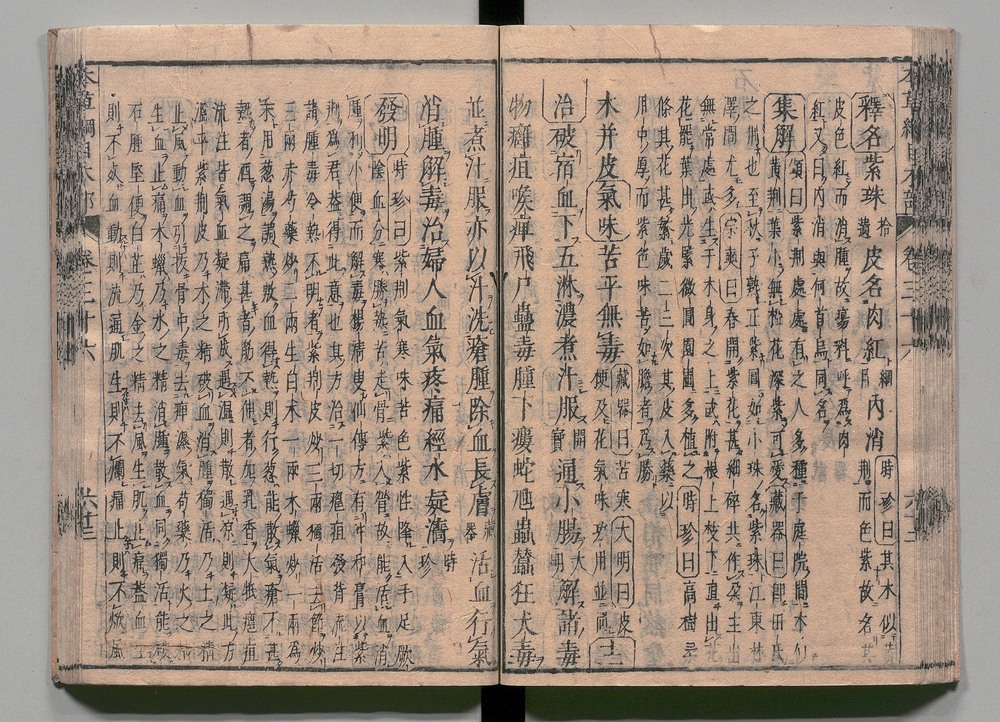 釋名紫珠拾遺皮名肉紅綱目內消時珍曰其木似黃荊而色紫故名其
皮色紅而消腫故瘍科呼為肉
紅又曰內消與何首烏同名
集解頌曰紫荊處處有之人多種于庭院間木似
黃荊葉小無椏花深紫可愛藏器曰即田氏
之荊也至秋子熟正紫圓如小珠名紫珠江東林
澤間尤多宗奭曰春開紫花甚細碎共作朵生出
無常處或生于木身之上或附根上枝下直出
花罷葉出光緊微圓園圃多植之時珍曰高樹柔
條其花甚繁歲二三次其皮色紫入藥以
川中厚而紫色味苦如膽者為勝
木并皮氣味苦平無毒藏器曰苦寒大明曰皮梗及花氣味功用並同主
治破宿血下五淋濃煮汁服開寶通小腸大明解諸毒
物癰疽喉痺飛尸蠱毒腫下瘻蛇虺蟲蠶狂犬毒
並煮汁服亦以汁洗瘡腫除血長膚藏器活血行氣
消腫解毒治婦人血氣疼痛經水凝濇時珍
發明時珍曰紫荊氣寒味苦色紫性降入手足厥
陰血分寒勝熱苦走骨紫入營故能活血消
腫利小便而解毒楊清叟仙傳方有沖和膏以紫
荊為君蓋得此意也其方治一切癰疽發背流注
諸腫毒冷熱不明者紫荊皮炒三兩獨活去節炒
三兩赤芍藥炒二兩生白朮一兩木蠟炒一兩為
末用葱湯調熱敷血得熱則行葱能散氣瘡不甚
熱者酒調之痛甚者筋不伸者加乳香大抵癰疽
流注皆氣血凝滯所成遇溫則散遇涼則凝此方
溫平紫荊皮乃木之精破血消腫獨活乃土之精
止風動血引拔骨中毒去痺濕氣芍藥乃火之精
生血止痛木蠟乃水之精消腫散血同獨活能破
石腫堅硬白芷乃金之精去風生肌止痛蓋血生
則不死血動則流通肌生則不爛痛止則不焮風
本草綱目木部 卷三十六 六十三